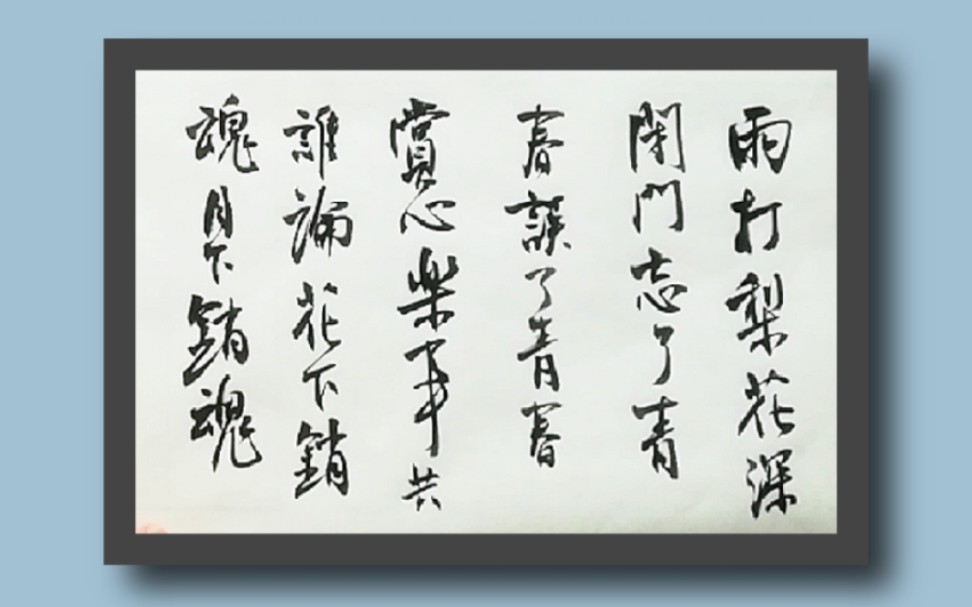 雨打梨花深
閉門忘了青
春誤了青春
賞心樂事共
誰論花下銷
魂月下銷魂